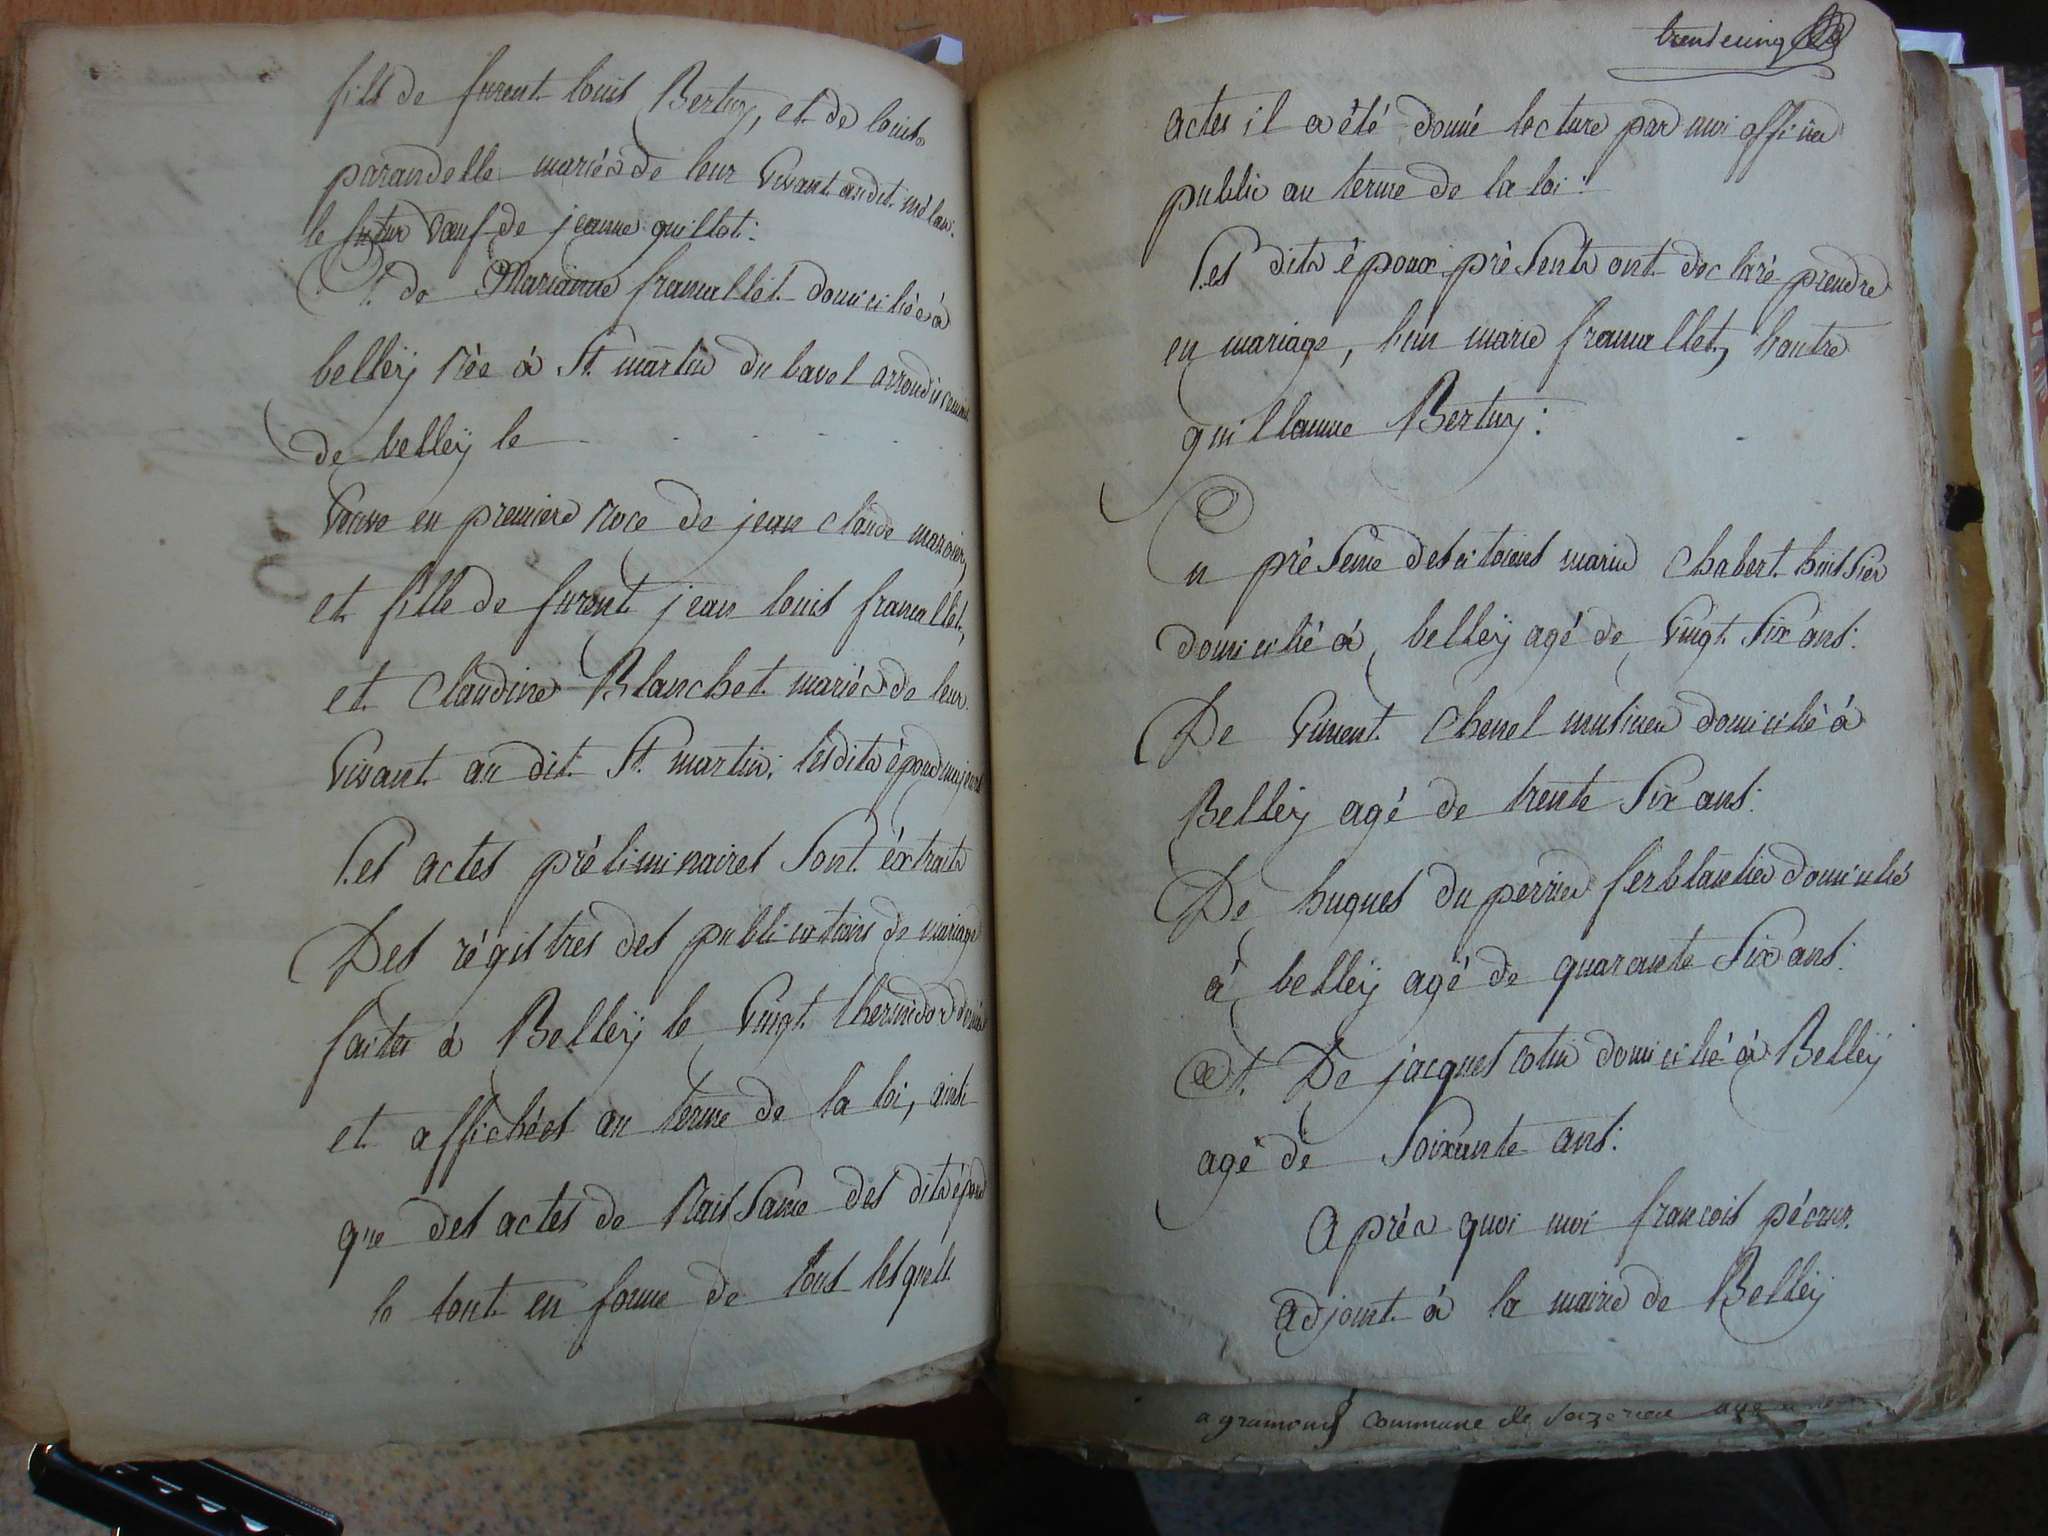 fils de furent louis Bertuy, et de louise
parandelle mariés de leur vivant audit mélan.
le futur vœuf de jeanne guillot:
Et de Marianne framallet domiciliée à
belleÿ née à St. martin du bavel arrondissement
de belleÿ le
Veuve en premiere noce de jean claude
et fille de furent jean louis framallet,
et Claudine Blanchet mariés de leur
vivant au dit St. martin; lesdits époux majeurs
Les actes préliminaires sont éxtraits
Des régistres des publications de mariage
faites à Belleÿ le vingt thermidor
et affichées au terme de la loi, ainsi
que des actes de naissance des dits époux
le tout en forme de tous lesquels
trente cinq
actes il a été donné lecture par moi officier
public au terme de la loi:
Les dits époux présents ont déclaré prendre
en mariage, l'un marie framallet, l'autre
guillaume Bertuy:
En présence des citoiens marin Chabert huissier
domicilié à belleÿ agé de vingt six ans:
De vincent Chenel musicien domicilié à
Belleÿ agé de trente six ans:
De hugues du perrier ferblantier domicilié
à belleÿ agé de quarante six ans:
Et De jacques cotin domicilié à Belleÿ
agé de soixante ans:
Après quoi moi francois pécour
adjoint à la mairie de Belleÿ
a gramond commune de